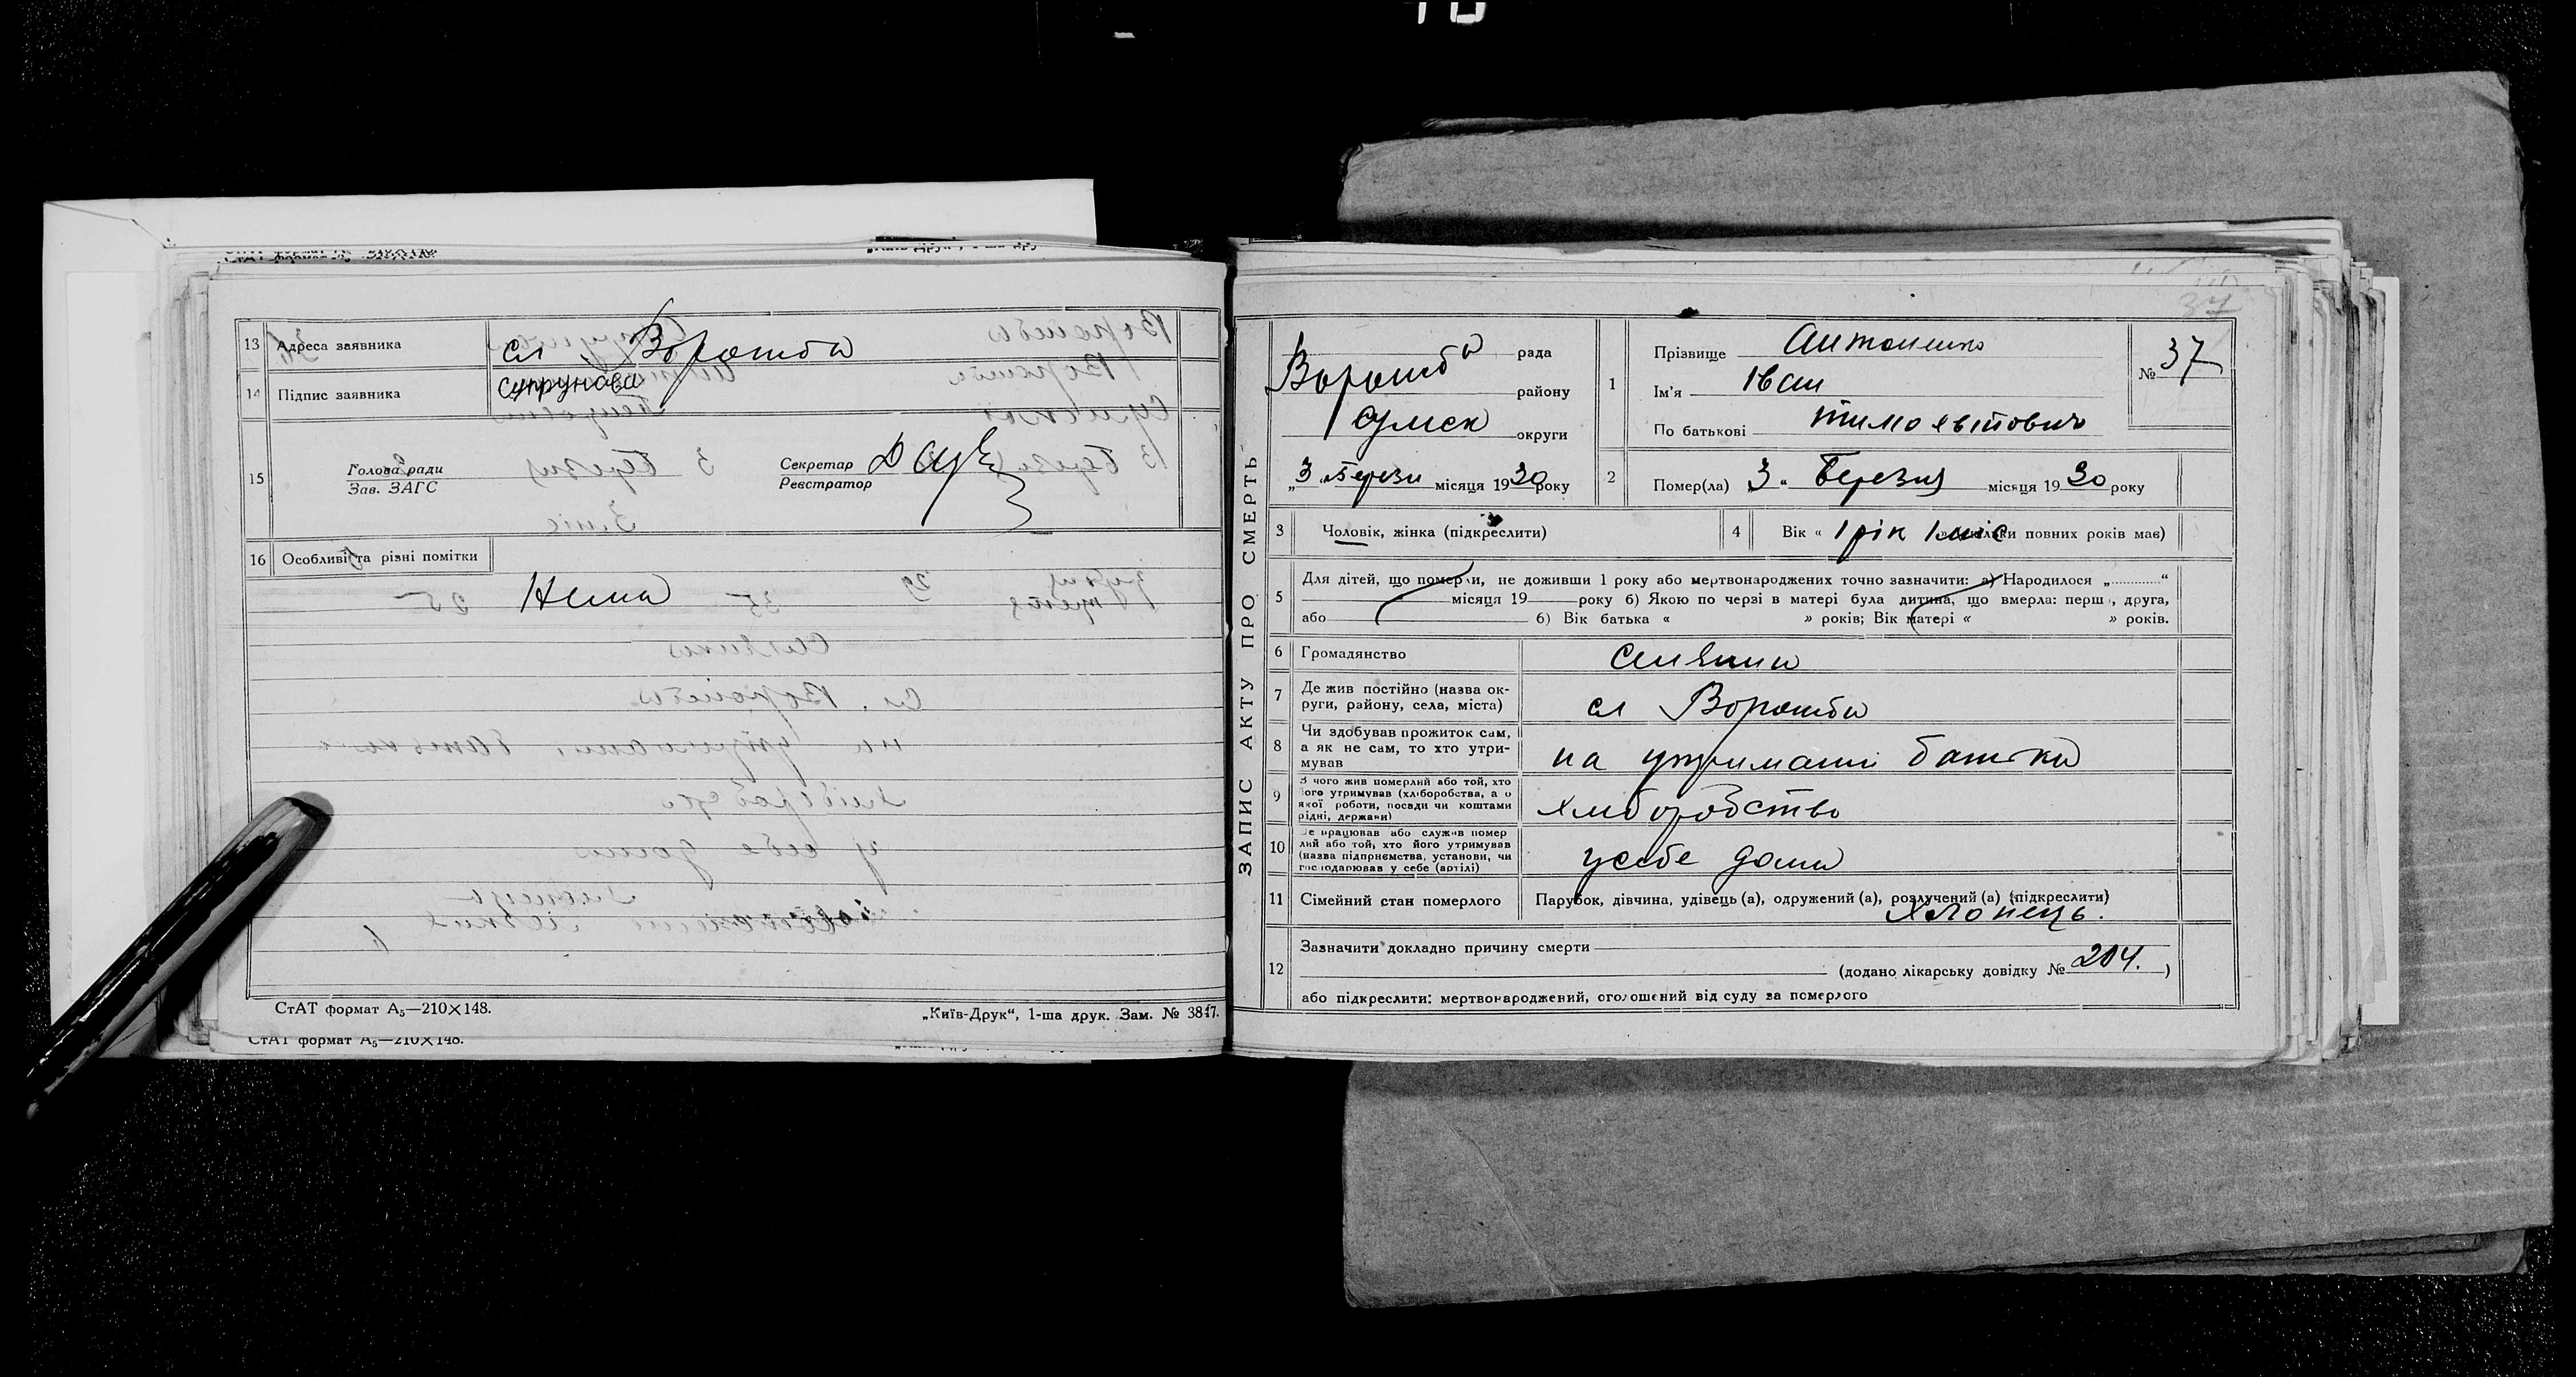 13 Адреса заявника сл. Ворожба
14 Підпис заявника Супрунова
15 Голова ради
Зав. ЗАГС
Секретар
Реєстратор
16 Особливі та різні помітки
Нема
СтАТ формат А₅—210×148.
„Київ-Друк“, 1-ша друк. Зам. № 3847.
СтАТ формат А₅—210×148.
ЗАПИС АКТУ ПРО СМЕРТЬ
37
Ворожб а рада
району
Сумск округи
„3„ Березн місяця 1930 року
1 Прізвище Антоненко
Ім'я Іван
По батькові Тимофійович
№ 37
2 Помер(ла) „3„ Березня місяця 1930 року
3 Чоловік, жінка (підкреслити)
4 Вік « 1 рік 1 міс повних років має)
5 Для дітей, що померли, не доживши 1 року або мертвонароджених точно зазначити: а) Народилося „............“
місяця 19 року б) Якою по черзі в матері була дитина, що вмерла: перша, друга,
або б) Вік батька « » років; Вік матері « » років.
6 Громадянство
7 Де жив постійно (назва ок-
руги, району, села, міста) сл Ворожба
8 Чи здобував прожиток сам,
а як не сам, то хто утри-
мував на утриманні батька
9 З чого жив померлий або той, хто
його утримував (хліборобства, а о
якої роботи, посади чи коштами
рідні, держави) хліборобство
10 Де працював або служив помер
лий або той, хто його утримував
(назва підприємства, установи, чи
господарював у себе (артілі) у себе дома
11 Сімейний стан померлого Парубок, дівчина, удівець (а), одружений (а), розлучений (а) (підкреслити)
Хлопець.
12 Зазначити докладно причину смерти
(додано лікарську довідку № 204. )
або підкреслити: мертвонароджений, оголошений від суду за померлого